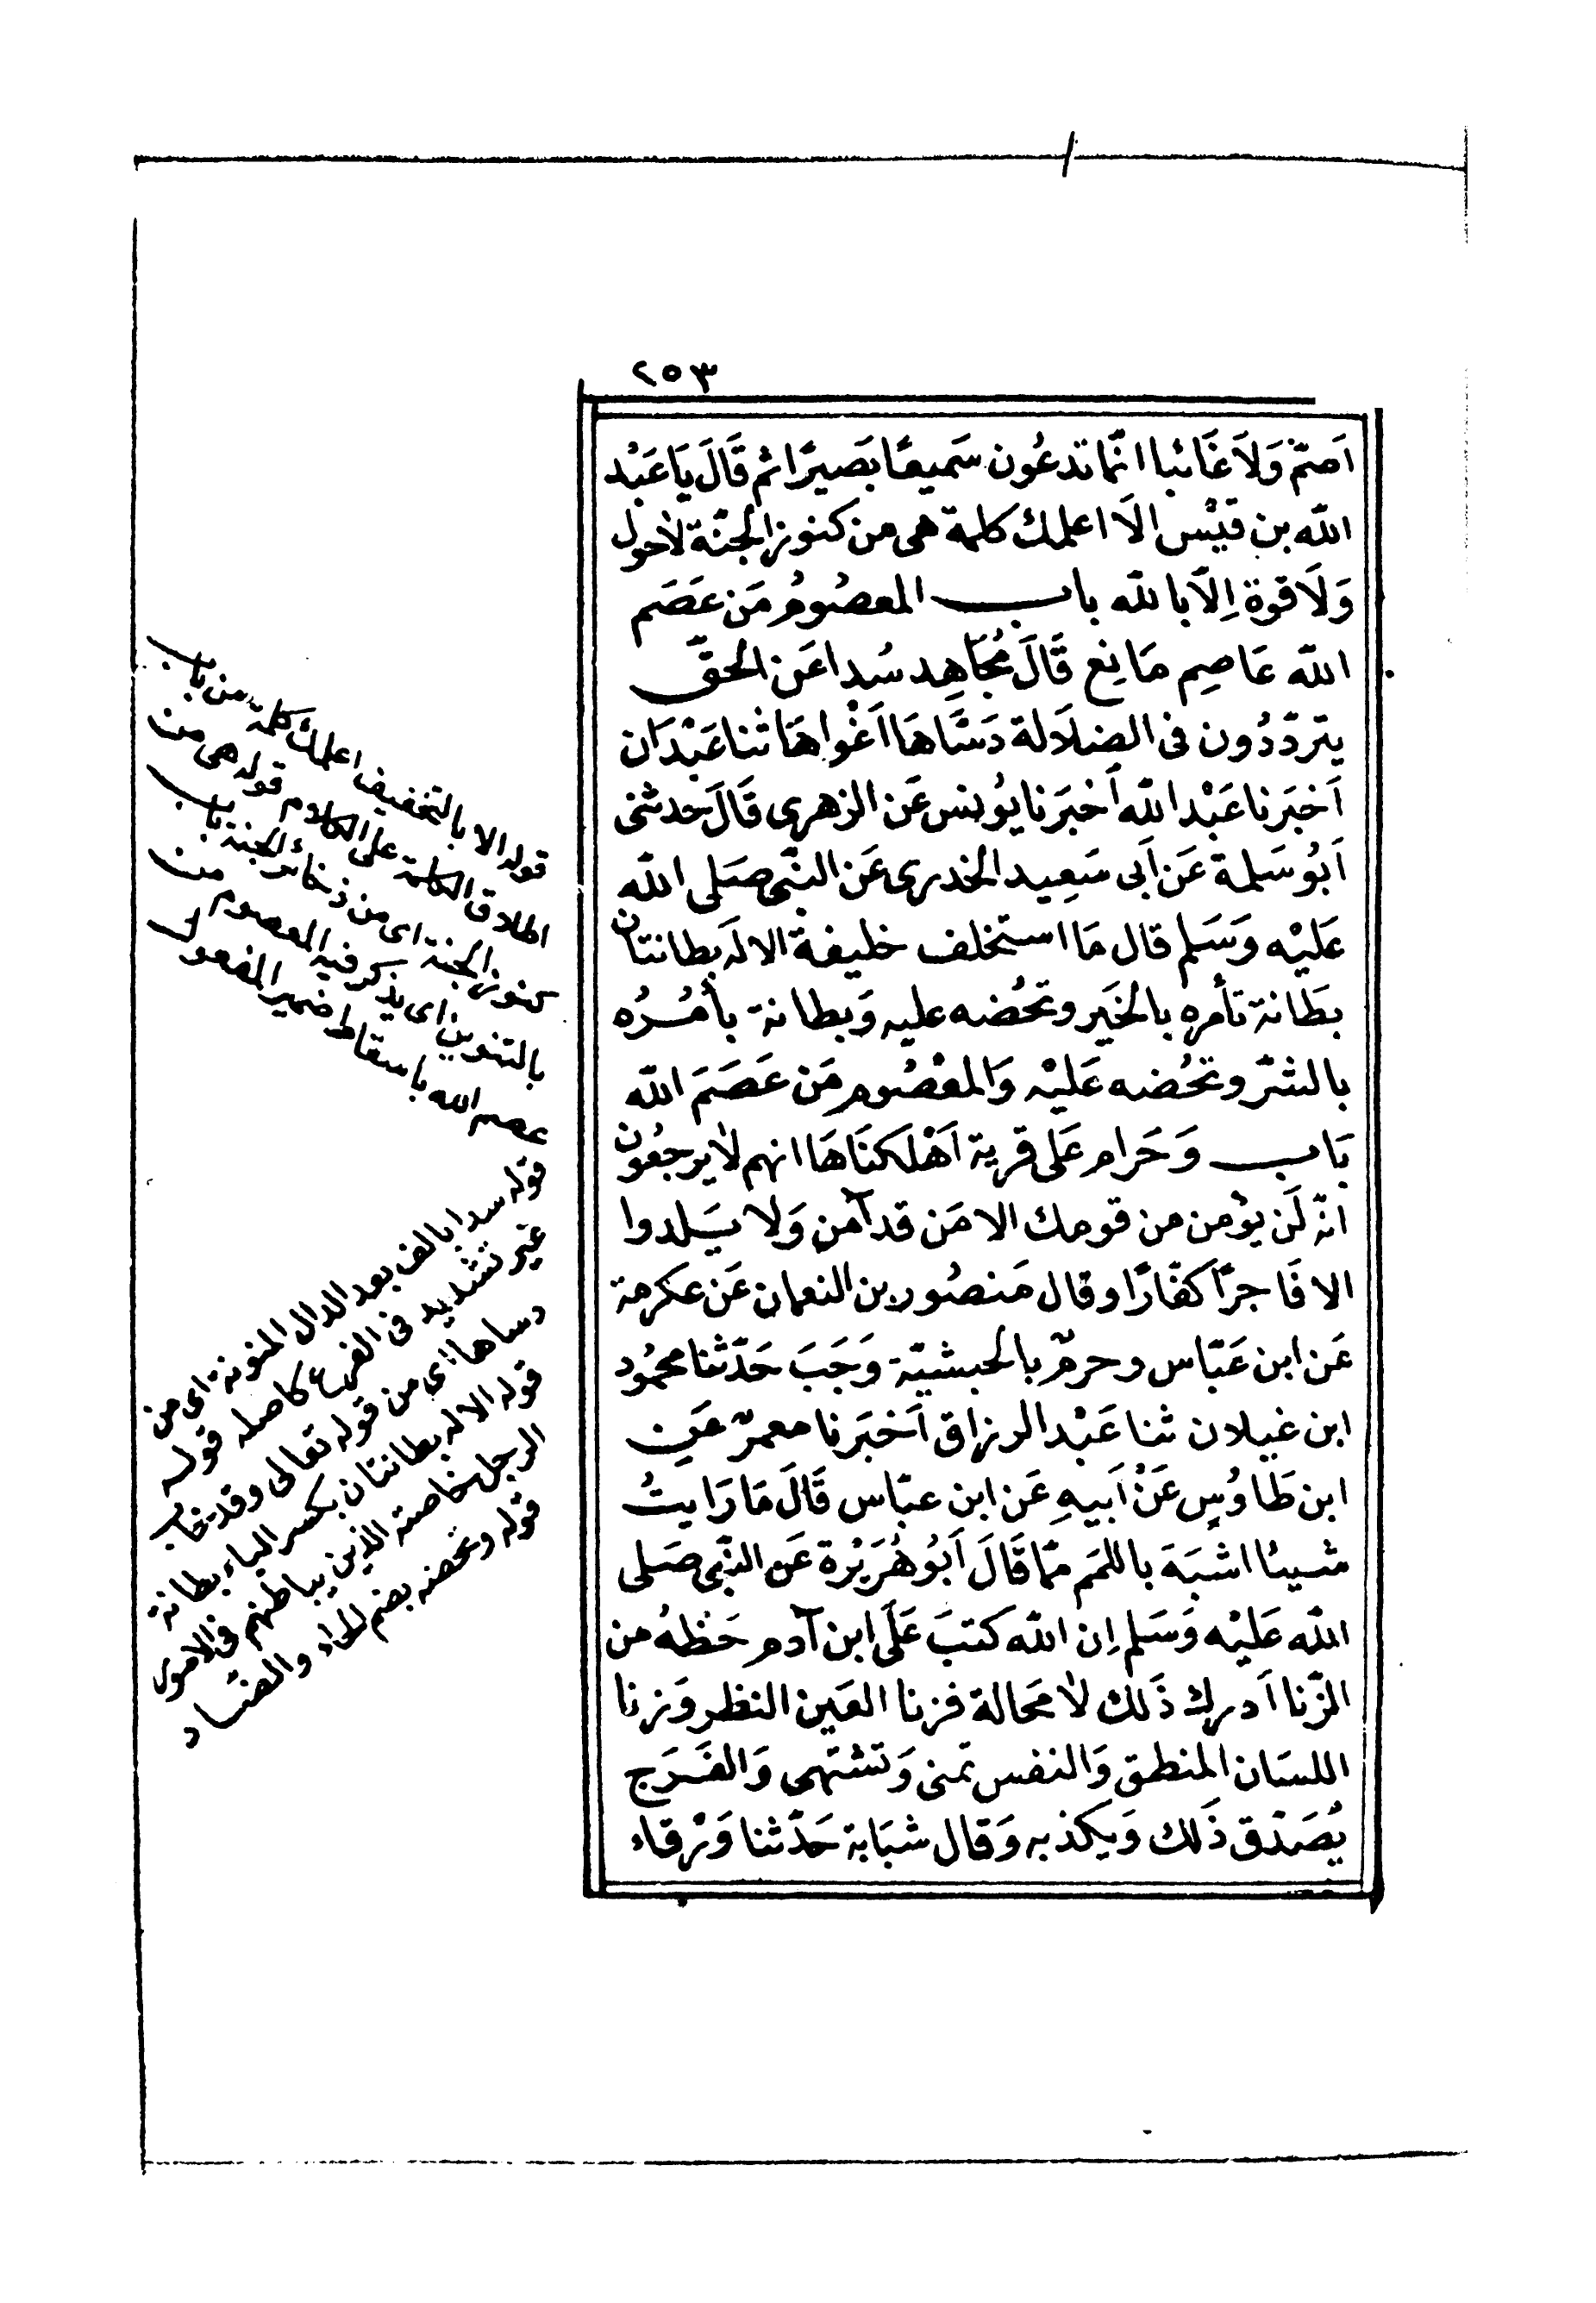 ٢٥٣
اَصمّ وَلاَ غَائبا انّما تدعُون سَميعًا بَصيرًا ثم قَالَ يَا عَبْد
الله بن قيْس الاَ اعلمك كلمة هى من كنوز الجنّة لاحول
وَلَا قوة اِلّا بالله باب المعصُومُ مَن عَصَم
الله عَاصِم مَانِع قَالَ مُجَاهِد سُدا عَن الحقّ
يتردّدُون فى الضلَالة دَسَّاهَا اَغْواهَا ثنا عَبْدَان
اَخبَرنا عَبْد الله اَخبَرنا يوُنس عَن الزهرى قَالَ حَدثنى
اَبوُ سَلمة عَن اَبى سَعِيد الخدرى عَن النّبى صَلى الله
عَليْه وَسَلم قال مَا استخلف خليفة الا له بطانتان
بطَانة تأمره بالخَير وتحُضه عليه وَبطانة يأمُرُه
بالشرّ وتحُضه عَليْه وَالمعْصُوم مَن عَصَمَ الله
بَاب وَحَرام عَلى قرية اَهْلكنَاهَا انهم لا يرجعُون
انّه لَن يؤمن من قومك الا مَن قد آمن وَلا يَلدوا
الا فَاجرًا كفّارًا وقال مَنصُور بن النعمان عَن عكرمة
عَن ابن عَبّاس وحرمٌ بالحبشيّة وَجَبَ حَدّثنا محمُود
ابن غيلان ثنا عَبْد الرزاق اَخبَرنا معمرٌ عَن
ابن طَاوُسٍ عَنْ اَبيهِ عَن ابن عبّاس قَالَ مَا رَايتُ
شيئا اشبَهَ باللمَم مّما قَالَ اَبوُ هُرَيْرة عَن النّبى صَلى
الله عَليْه وَسَلم اِن الله كتبَ عَلَى ابن آدم حَظهُ من
الزّنا اَدرك ذَلك لا مَحالة فزنا العَين النظر وَزنا
اللسَان المنطق وَالنفس تمَنى وَتشتهى وَالفَرَج
يُصَدّق ذَلك وَيكذبه وَقال شبَابة حَدّثنا وَرْقاء
قوله الا بالتخفيف اعلمك كلمة من باب
اطلاق الكلمة على الكلام قوله هى من
كنوز الجنة اى من ذخائر الجنة باب
بالتنوين اى يذكر فيه المعصوم من
عصم الله باسقاط ضمير المفعول
قوله سدا بالف بعد الدال المنونة اى من
غير تشديد فى الفرع كاصله قوله
دساها اى من قوله تعالى وقد خاب
قوله الا له بطانتان بكسر الباء بطانة
الرجل خاصته الذين يباطنهم فى الامور
قوله وتحضه بضم الحاء والضاد